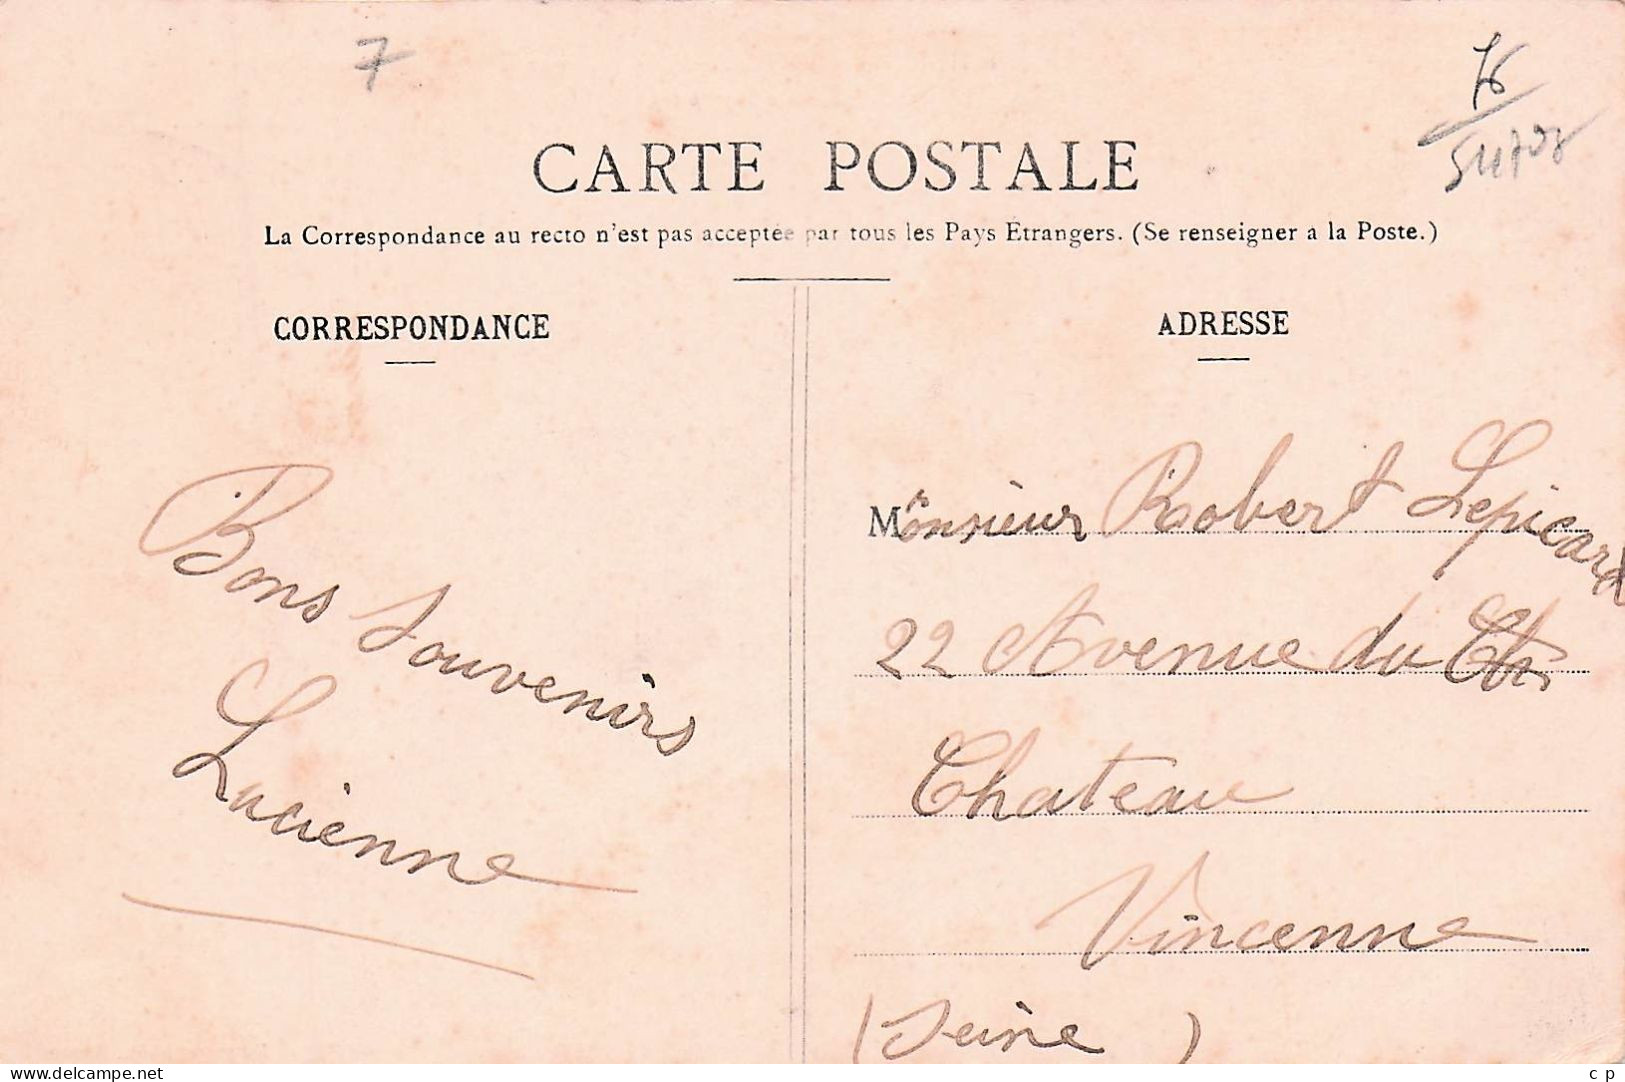 7
76
CARTE POSTALE
La Correspondance au recto n'est pas acceptée par tous les Pays Etrangers. (Se renseigner a la Poste.)
CORRESPONDANCE
Bons Souvenirs
Lucienne
ADRESSE
Monsieur Robert Lepicard
22 Avenue du
Chateau
Vincenne
(Seine)
delcampe.net
c p